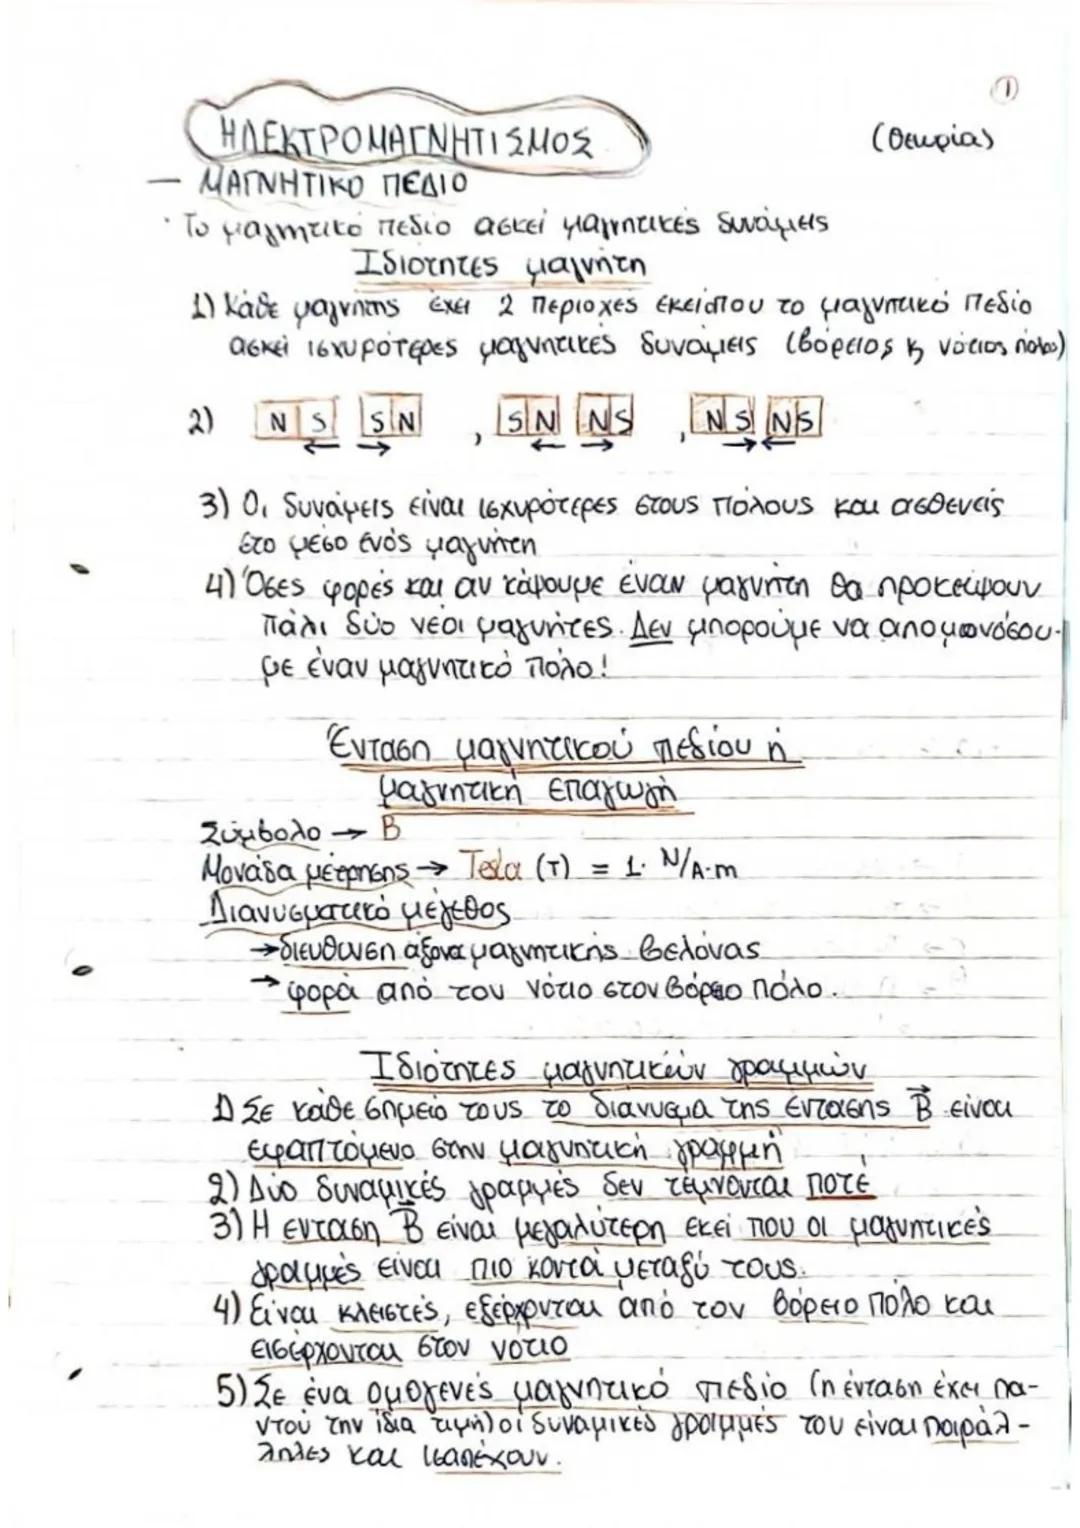 1
ΗΛΕΚΤΡΟΜΑΓΝΗΤΙΣΜΟΣ
(Θεωρία)
— ΜΑΓΝΗΤΙΚΟ ΠΕΔΙΟ
· Το μαγνητικό πεδίο ασκεί μαγνητικές δυνάμεις
Ιδιότητες μαγνήτη
1) Κάθε μαγνήτης έχει 2 περιοχές εκεί όπου το μαγνητικό πεδίο
ασκεί ισχυρότερες μαγνητικές δυνάμεις (βόρειος κ νότιος πόλος)
2) N S S N , S N N S , N S N S
3) Οι δυνάμεις είναι ισχυρότερες στους πόλους και ασθενείς
στο μέσο ενός μαγνήτη
4) Όσες φορές και αν κόψουμε έναν μαγνήτη θα προκύψουν
πάλι δύο νέοι μαγνήτες. Δεν μπορούμε να απομονώσου-
με έναν μαγνητικό πόλο!
Ένταση μαγνητικού πεδίου ή
μαγνητική επαγωγή
Σύμβολο → B
Μονάδα μέτρησης → Tesla (T) = 1· N/A·m
Διανυσματικό μέγεθος
→ διεύθυνση άξονα μαγνητικής βελόνας
→ φορά από τον νότιο στον βόρειο πόλο.
Ιδιότητες μαγνητικών γραμμών
1) Σε κάθε σημείο τους το διάνυσμα της έντασης B⃗ είναι
εφαπτόμενο στην μαγνητική γραμμή
2) Δύο δυναμικές γραμμές δεν τέμνονται ποτέ
3) Η ένταση B⃗ είναι μεγαλύτερη εκεί που οι μαγνητικές
γραμμές είναι πιο κοντά μεταξύ τους.
4) Είναι κλειστές, εξέρχονται από τον βόρειο πόλο και
εισέρχονται στον νότιο
5) Σε ένα ομογενές μαγνητικό πεδίο (η ένταση έχει πα-
ντού την ίδια τιμή) οι δυναμικές γραμμές του είναι παράλ-
ληλες και ισαπέχουν.